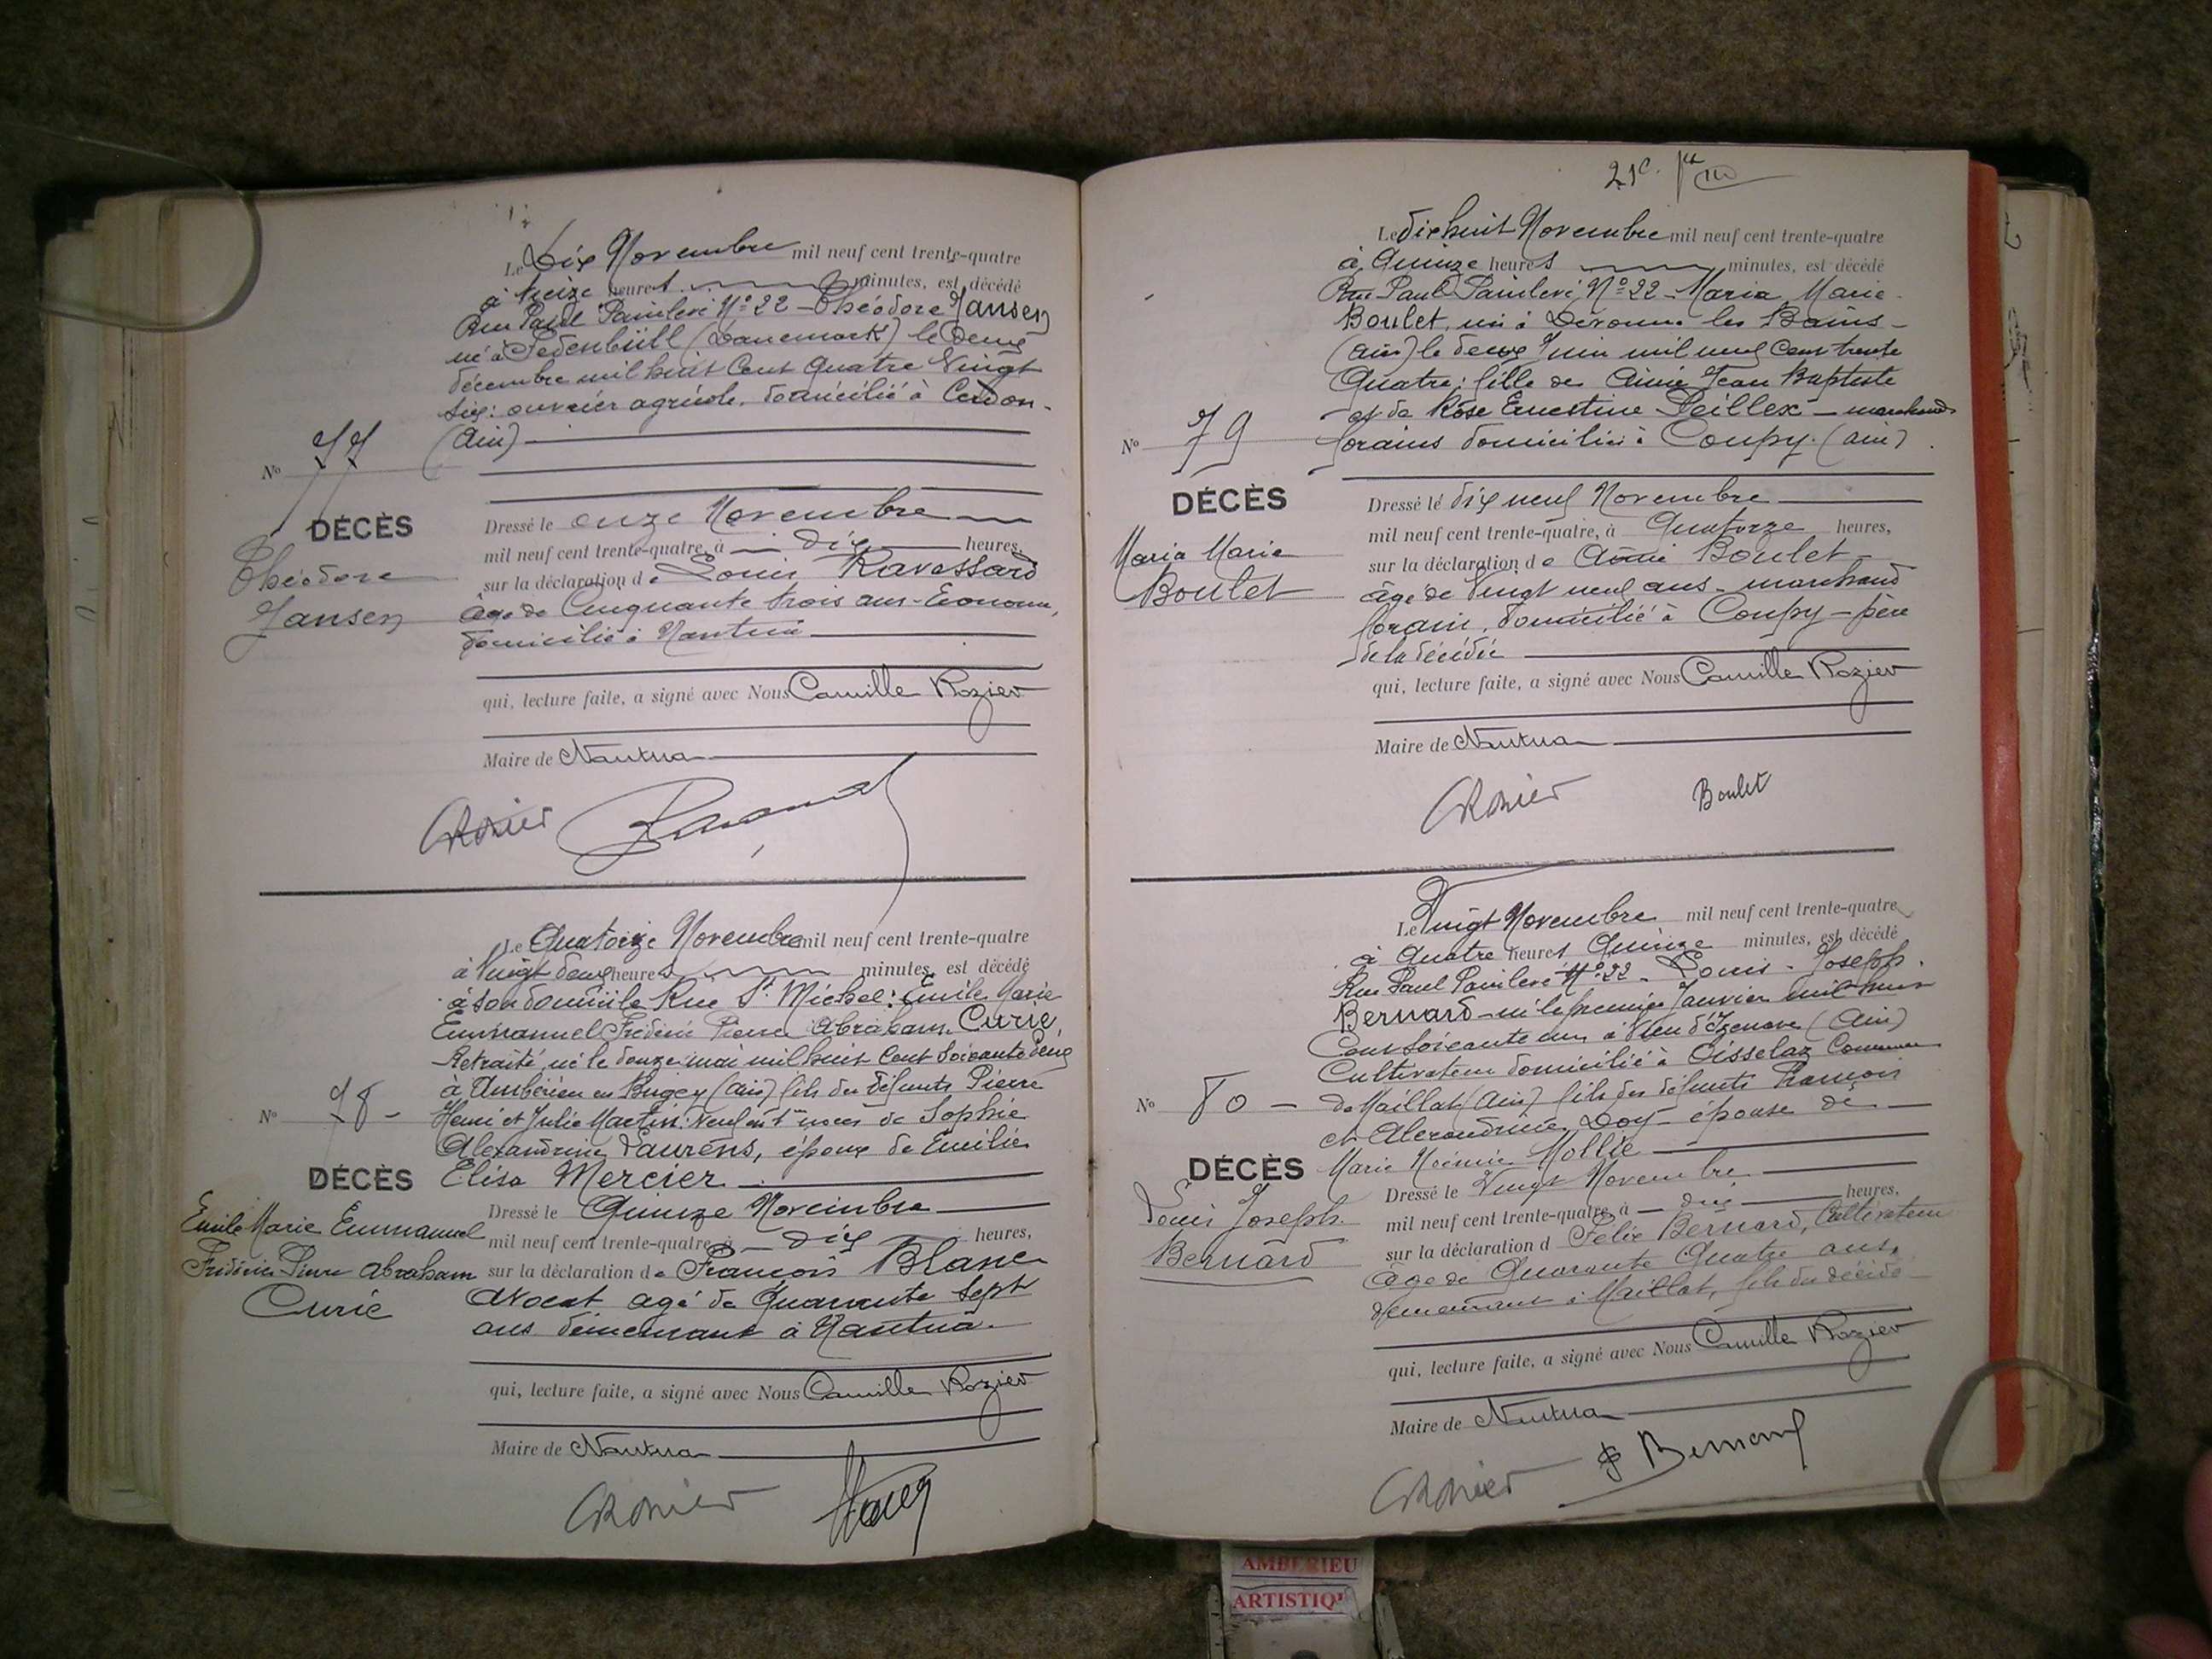 Le Dix Novembre mil neuf cent trente-quatre
à treize heures minutes, est décédé
Rue Paul Painlevé N° 22 - Théodore Jansen
né à Pedenbüll (Danemark) le Deux
décembre mil huit Cent Quatre Vingt
Six: ouvrier agricole. domicilié à Cerdon.
(Ain)
N° 77
DÉCÈS
Théodore
Jansen
Dressé le onze Novembre
mil neuf cent trente-quatre, à dix heures,
sur la déclaration de Louis Ravassard
âgé de Cinquante trois ans - Econome,
domicilié à Nantua
qui, lecture faite, a signé avec Nous Camille Rozier
Maire de Nantua
CRozier
Le Quatorze Novembre mil neuf cent trente-quatre
à Vingt deux heures minutes, est décédé
à son domicile Rue St Michel: Emile Marie
Emmanuel Frédéric Pierre Abraham Curie,
Retraité, né le douze mai mil huit Cent Soixante
à Ambérieu en Bugey (Ain) fils des défunts Pierre
Henri et Julie Martin: Veuf en 1res noces de Sophie
Alexandrine Laurens, époux de Emilie
Elisa Mercier
N° 78 -
DÉCÈS
Emile Marie Emmanuel
Frédéric Pierre Abraham
Curie
Dressé le Quinze Novembre
mil neuf cent trente-quatre, à dix heures,
sur la déclaration de François Blanc
Avocat agé de Quarante Sept
ans demeurant à Nantua.
qui, lecture faite, a signé avec Nous Camille Rozier
Maire de Nantua
CRozier
21e.
Le dix huit Novembre mil neuf cent trente-quatre
à Quinze heures minutes, est décédé
Rue Paul Painlevé N° 22 - Maria Marie
Boulet, née à Divonne les Bains -
(Ain) le deux Juin mil neuf Cent trente
Quatre; fille de Aimé Jean Baptiste
et de Rose Ernestine Peillex - marchands
forains domiciliés à Coupy. (Ain)
N° 79
DÉCÈS
Maria Marie
Boulet
Dressé le dix neuf Novembre
mil neuf cent trente-quatre, à Quatorze heures,
sur la déclaration de Aimé Boulet -
âgé de Vingt neuf ans - marchand
forain, domicilié à Coupy - père
de la décédée
qui, lecture faite, a signé avec Nous Camille Rozier
Maire de Nantua
CRozier Boulet
Le Vingt Novembre mil neuf cent trente-quatre
à Quatre heures Quinze minutes, est décédé
Rue Paul Painlevé N° 22 - Louis - Joseph.
Bernard - né le premier Janvier mil
Cent Soixante un à Vieu d'Izenave (Ain)
Cultivateur domicilié à Oisselaz Commune
de Maillat (Ain) fils des défunts François
et Alexandrine Doy - épouse de
Marie Noémie Mollie
N° 80 -
DÉCÈS
Louis Joseph
Bernard
Dressé le Vingt Novembre
mil neuf cent trente-quatre, à heures,
sur la déclaration d Félix Bernard, Cultivateur
âgé de Quarante Quatre ans,
demeurant à Maillat, fils du décédé
qui, lecture faite, a signé avec Nous Camille Rozier
Maire de Nantua
CRozier Bernard
AMBERIEU
ARTISTIQ